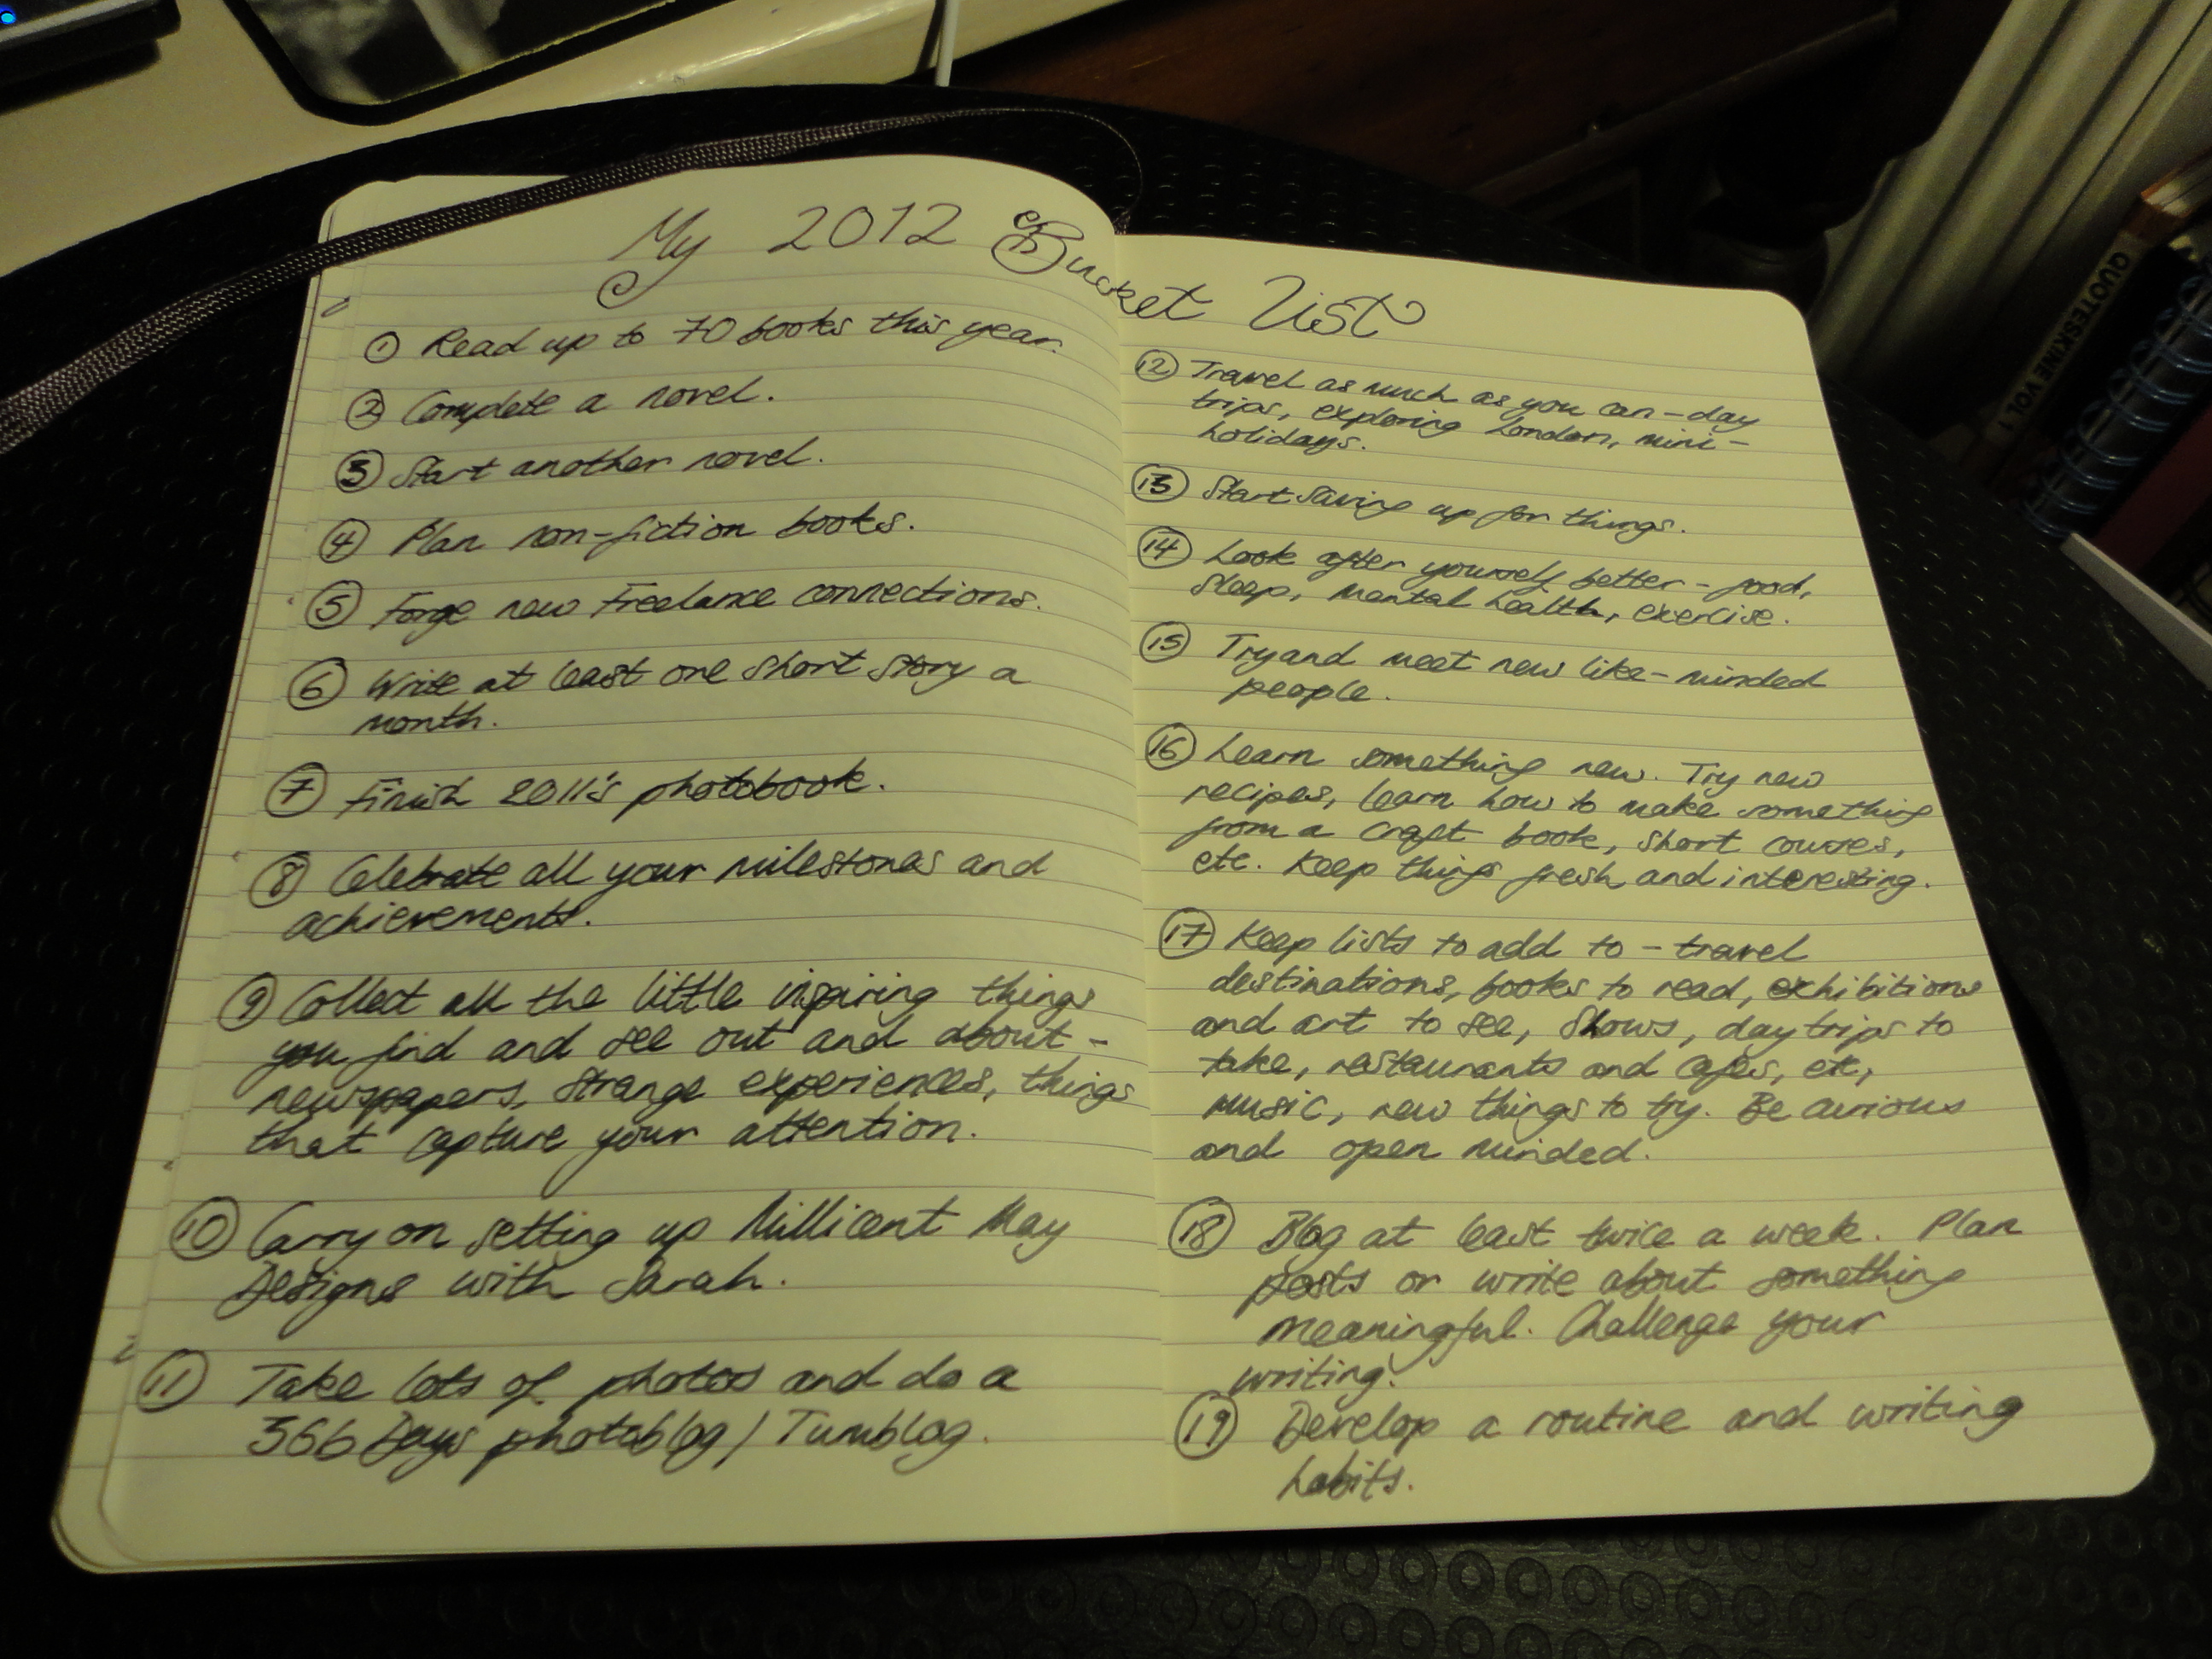 My 2012 Bucket List
① Read up to 70 books this year.
② Complete a novel.
③ Start another novel.
④ Plan non-fiction books.
⑤ Forge new freelance connections.
⑥ Write at least one short story a
month.
⑦ Finish 2011's photobook.
⑧ Celebrate all your milestones and
achievements.
⑨ Collect all the little inspiring things
you find and see out and about -
newspapers, strange experiences, things
that capture your attention.
⑩ Carry on setting up Millicent May
Designs with Sarah.
⑪ Take lots of photos and do a
366 Days photoblog / Tumblog.
⑫ Travel as much as you can - day
trips, exploring London, mini-
holidays.
⑬ Start saving up for things.
⑭ Look after yourself better - food,
sleep, mental health, exercise.
⑮ Try and meet new like-minded
people.
⑯ Learn something new. Try new
recipes, learn how to make something
from a craft book, short courses,
etc. Keep things fresh and interesting.
⑰ Keep lists to add to - travel
destinations, books to read, exhibitions
and art to see, shows, daytrips to
take, restaurants and cafes, etc,
music, new things to try. Be curious
and open minded.
⑱ Blog at least twice a week. Plan
posts or write about something
meaningful. Challenge your
writing.
⑲ Develop a routine and writing
habits.
QUOTESKINE VOL 1